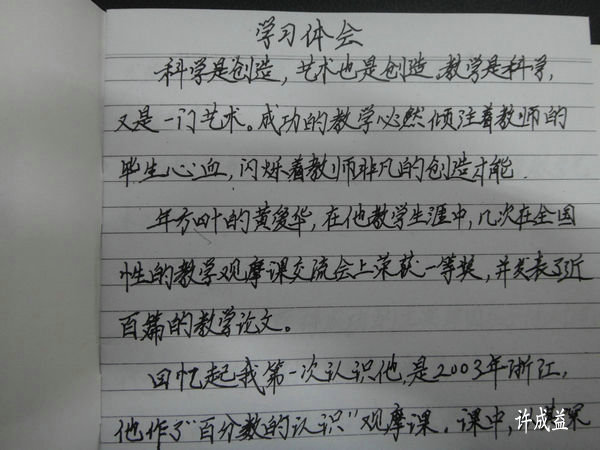 学习体会
科学是创造，艺术也是创造，教学是科学，
又是一门艺术。成功的教学必然倾注着教师的
毕生心血，闪烁着教师非凡的创造才能．
年方四十的黄爱华，在他教学生涯中，几次在全国
性的教学观摩课交流会上荣获一等奖，并发表了近
百篇的教学论文。
回忆起我第一次认识他，是2003年浙江，
他作了“百分数的认识”观摩课．课中，
许成益